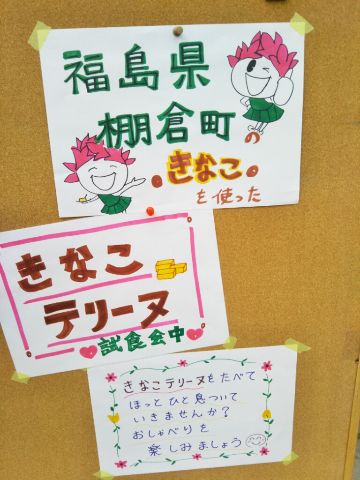 福島県
棚倉町の
きなこ
を使った
きなこ
テリーヌ
試食会中
きなこテリーヌをたべて
ほっとひと息ついて
いきませんか?
おしゃべりを
楽しみましょう